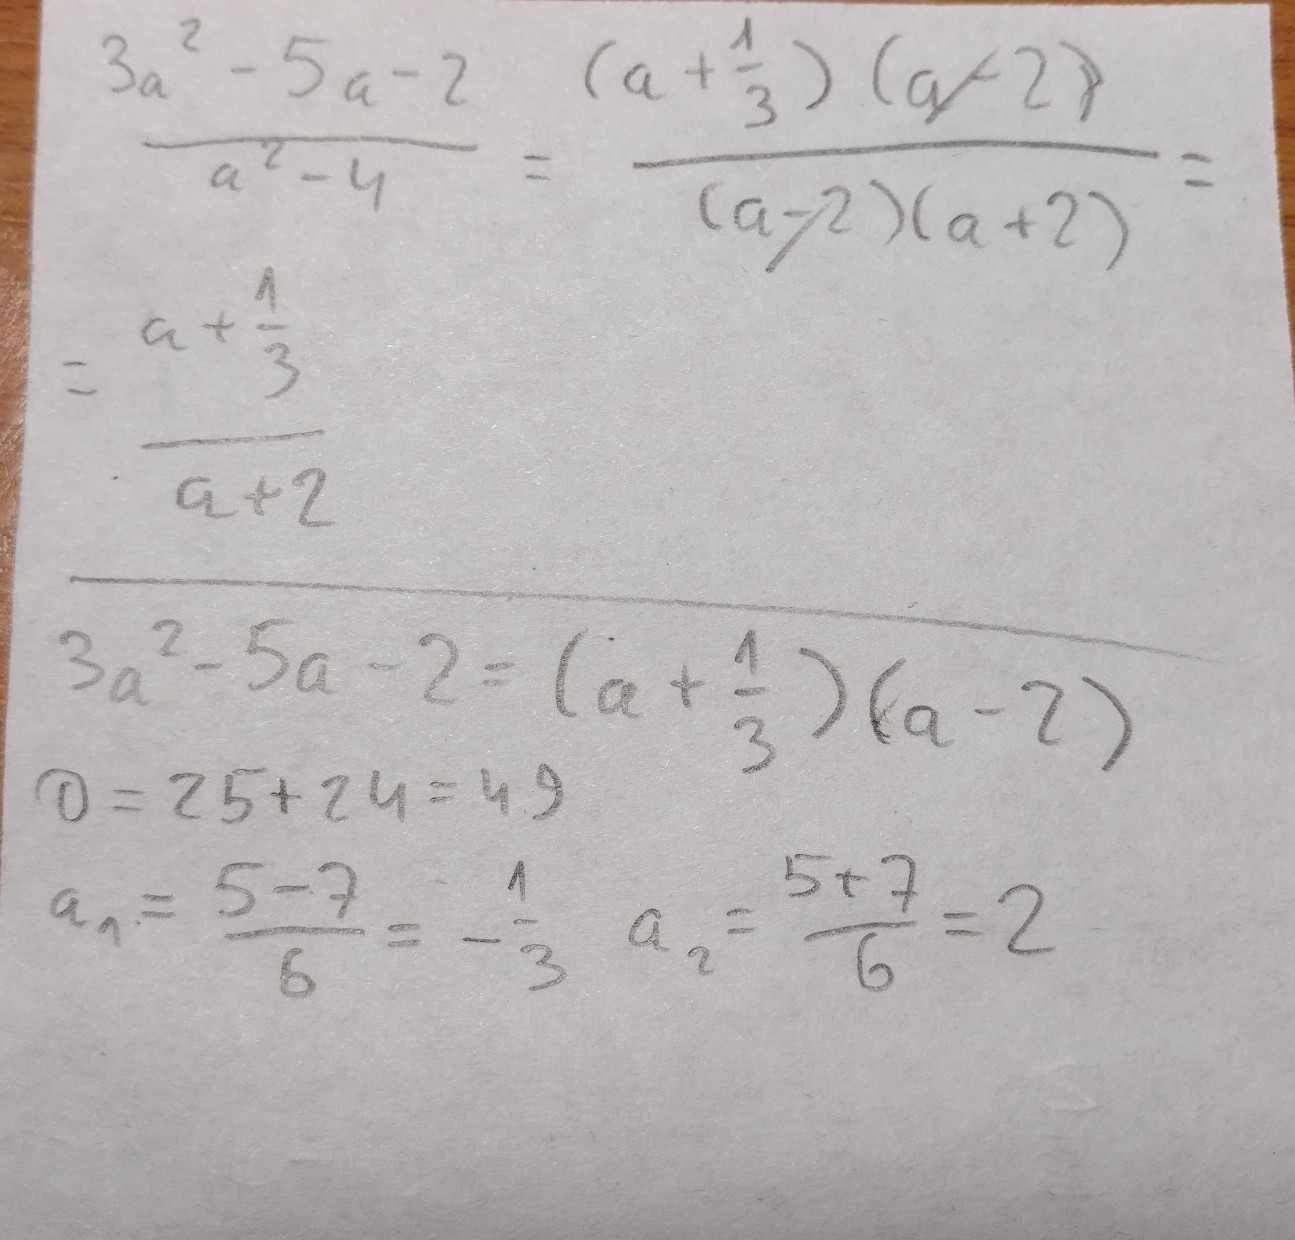 3a² - 5a - 2 / a² - 4 = (a + 1/3)(a - 2) / (a - 2)(a + 2) =
= a + 1/3 / a + 2
3a² - 5a - 2 = (a + 1/3)(a - 2)
D = 25 + 24 = 49
a₁ = 5 - 7 / 6 = - 1/3 a₂ = 5 + 7 / 6 = 2